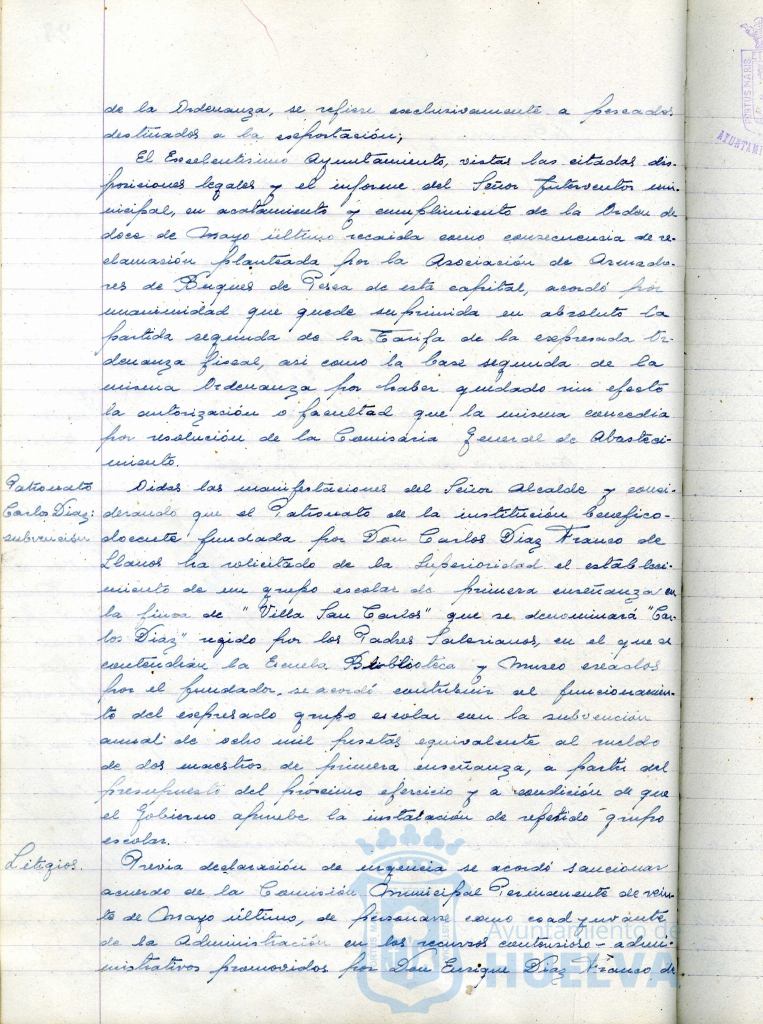 de la Ordenanza, se refiere exclusivamente a pescados
destinados a la exportación;
El Excelentísimo Ayuntamiento, vistas las citadas dis-
posiciones legales y el informe del Señor Interventor mu-
nicipal, en acatamiento y cumplimiento de la Orden de
doce de Mayo último recaida como consecuencia de re-
clamación planteada por la Asociación de Armado-
res de Buques de Pesca de esta capital, acordó por
unanimidad que quede suprimida en absoluto la
partida segunda de la Tarifa de la expresada Or-
denanza fiscal, asi como la base segunda de la
misma Ordenanza por haber quedado sin efecto
la autorización o facultad que la misma concedia
por resolución de la Comisaria General de Abasteci-
miento.
Patronato
Carlos Diaz:
subvención
Oidas las manifestaciones del Señor Alcalde y consi-
derando que el Patronato de la institución benefico-
docente fundada por Don Carlos Diaz Franco de
Llanos ha solicitado de la Superioridad el estableci-
miento de un grupo escolar de primera enseñanza en
la finca de "Villa San Carlos" que se denominará "Car-
los Diaz" regido por los Padres Salesianos, en el que se
contendrán la Escuela Biblioteca y Museo creados
por el fundador, se acordó contribuir al funcionamien-
to del expresado grupo escolar con la subvención
anual de ocho mil pesetas equivalente al sueldo
de dos maestros de primera enseñanza, a partir del
presupuesto del proximo ejercicio y a condición de que
el Gobierno apruebe la instalación de refetido grupo
escolar.
Litigios.
Previa declaración de urgencia se acordó sancionar
acuerdo de la Comisión Municipal Permanente de vein-
te de Mayo último, de personarse como coadyuvante
de la Administración en los recursos contencioso-admi-
nistrativos promovidos por Don Enrique Diaz Franco de
Ayuntamiento de
HUELVA